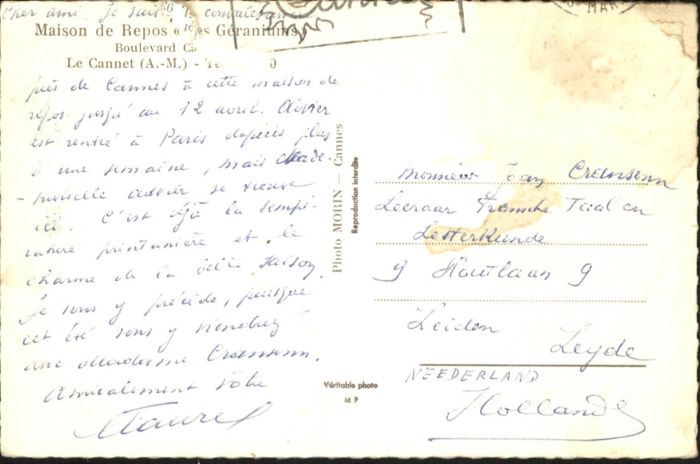 Cher ami. Je suis en convalescence
Maison de Repos « Les Géraniums »
Boulevard
Le Cannet (A.-M.) -
près de Cannes à cette maison de
repos jusqu'au 12 avril. Auvier
est rentré à Paris depuis plus
d'une semaine, mais Made-
-moiselle Auvier se trouve
ici. C'est déjà la tempé-
rature printanière et le
charme de la belle saison.
Je vous y précède, puisque
cet été vous y viendrez
avec Madame
Amicalement votre
Photo MORIN — Cannes
Reproduction interdite
Véritable photo
M P
Monsieur
Leeraar Fransche Taal en
Letterkunde
9 Houtlaan 9
Leiden
Leyde
NEEDERLAND
Hollande